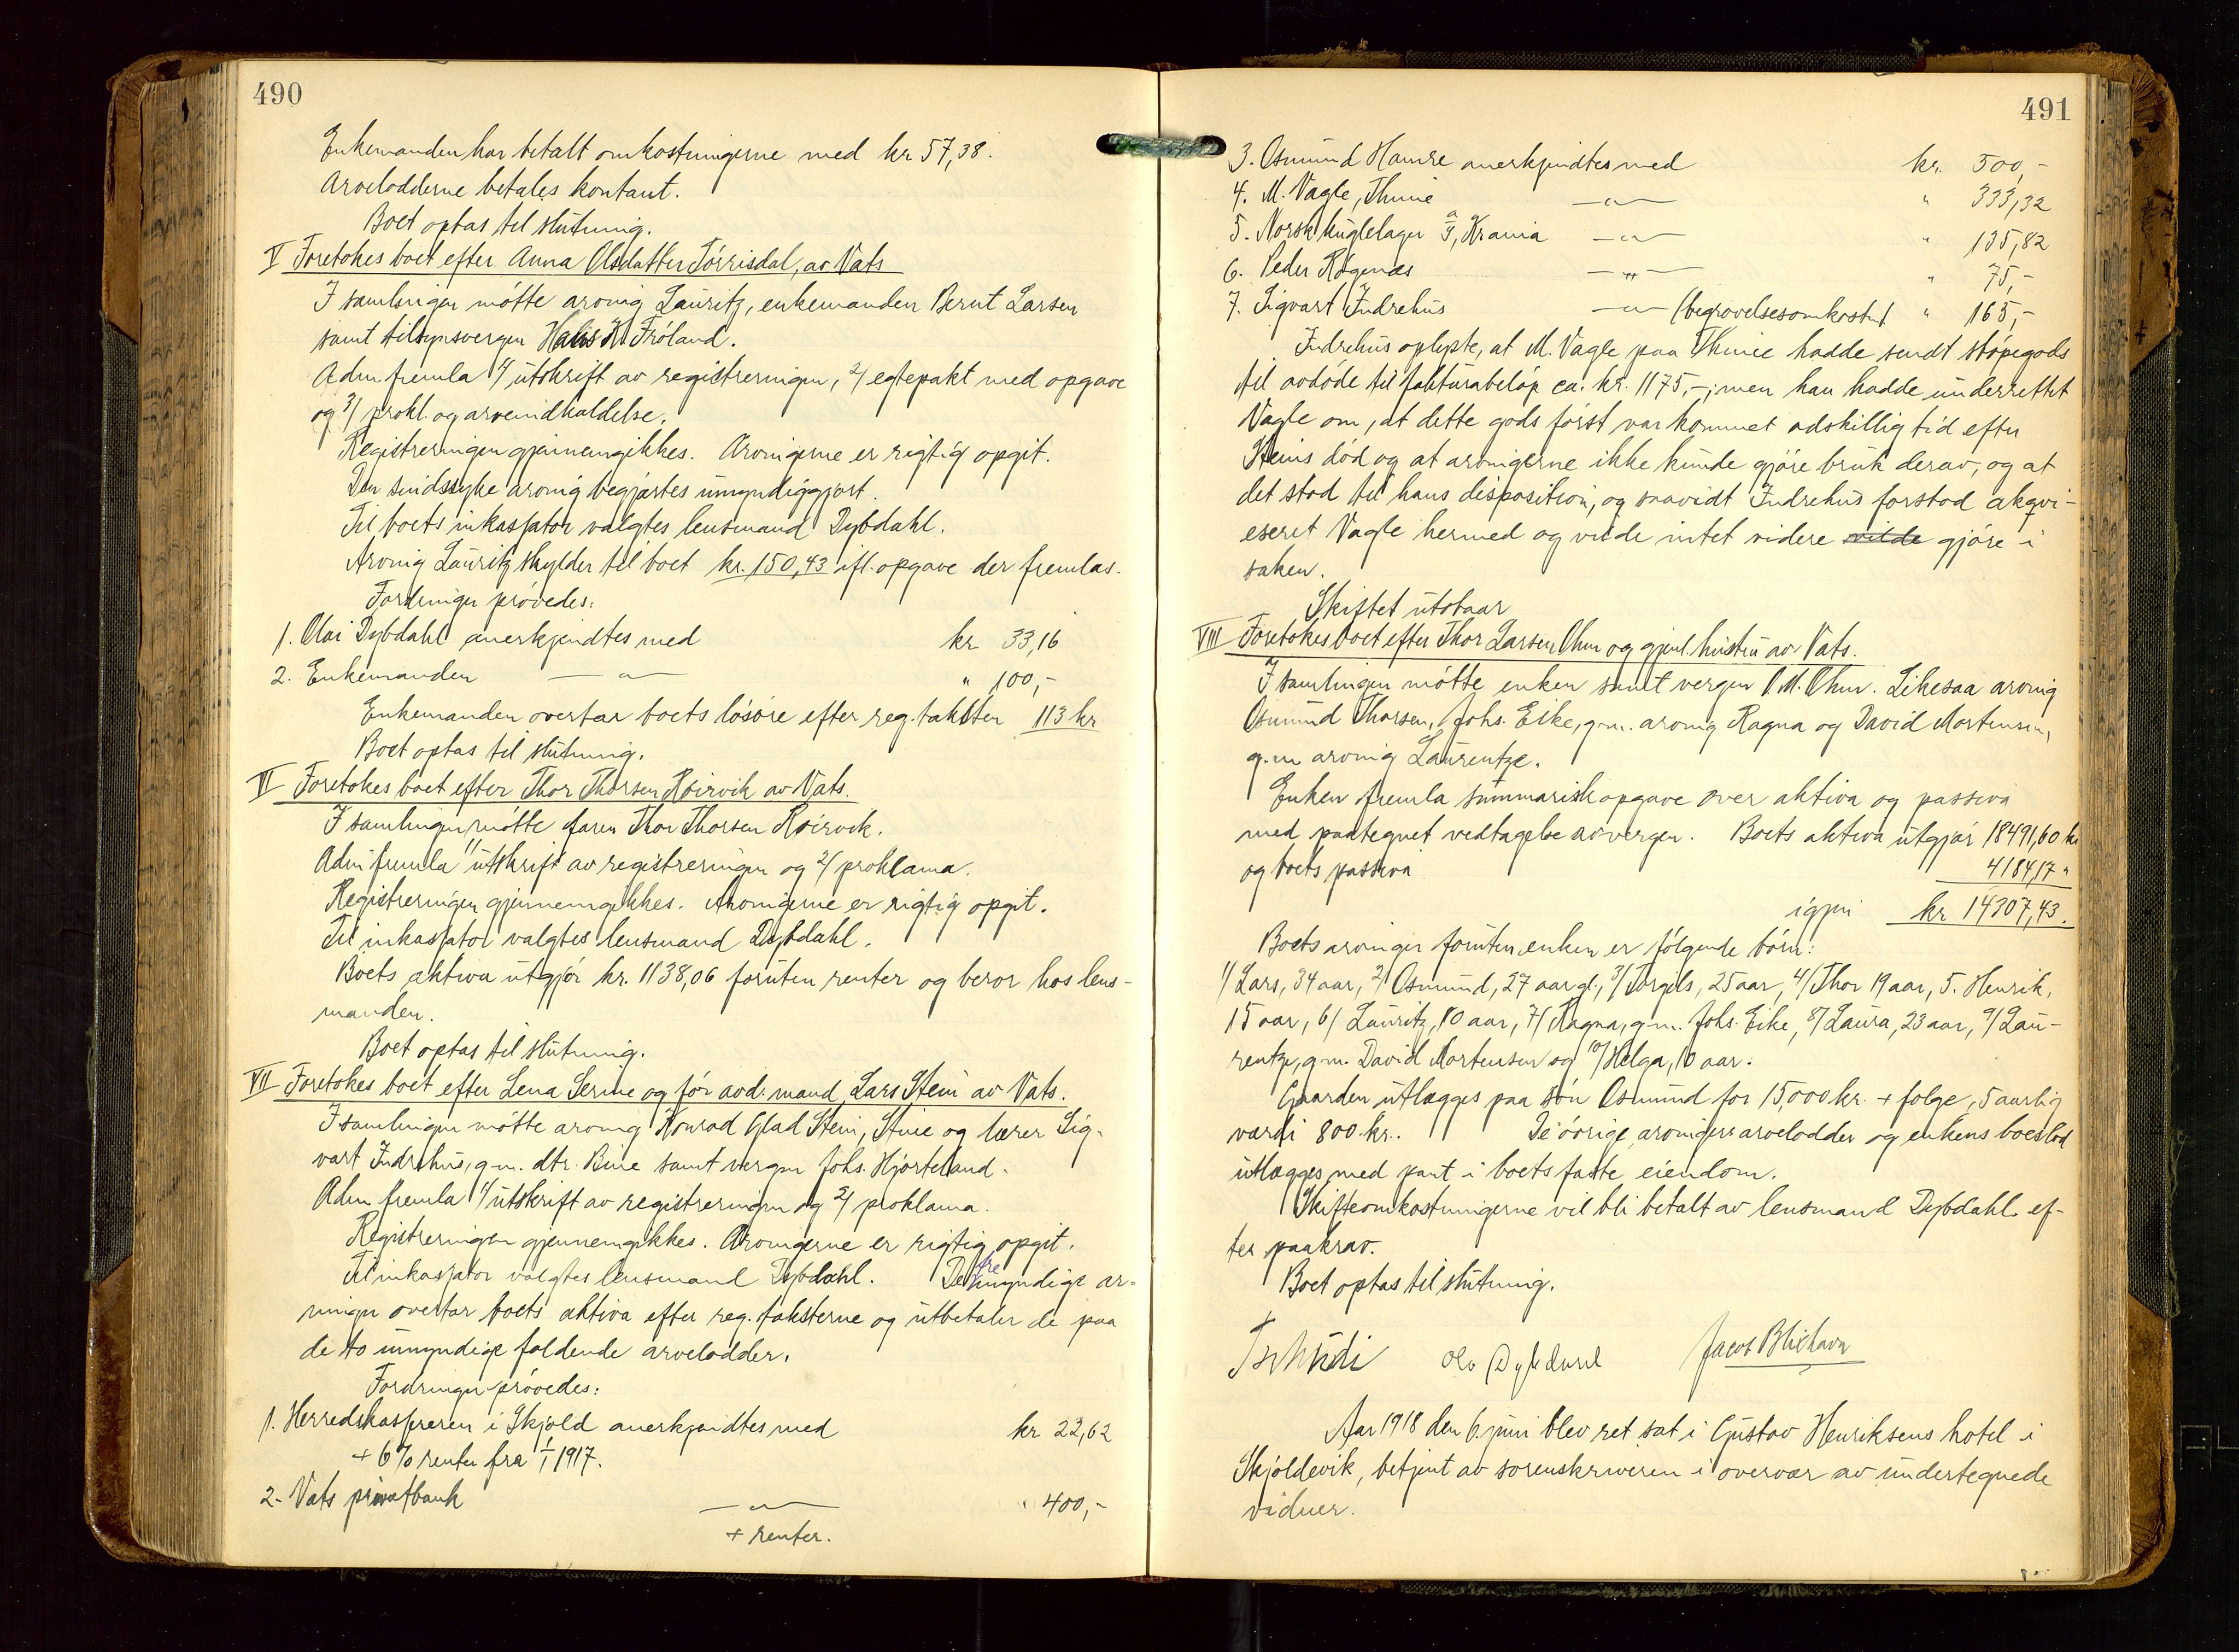 490
Enkemanden har betalt omkostningerne med kr 57,38.
Arvelodderne betales kontant.
Boet optas til slutning.
V Foretokes boet efter Anna Olsdatter Tørrisdal, av Vats
I samlingen møtte arving Lauritz, enkemanden Bernt Larsen
samt tilsynsvergen Hans K Frøland.
Adm fremla 1/ utskrift av registreringen, 2/ egtepakt med opgave
og 3/ prokl. og arveindkaldelse.
Registreringen gjennemgikkes. Arvingerne er rigtig opgit.
Den sindssyke arving begjærtes umyndiggjort.
Til boets inkassator valgtes lensmand Dybdahl.
Arving Lauritz skylder til boet kr. 150,43 ifl. opgave der fremlas.
Fordringer prøvedes:
1. Olai Dybdahl anerkjendtes med kr 33,16
2. Enkemanden —〃— " 100,-
Enkemanden overtar boets løsøre efter reg. taksten 113 kr
Boet optas til slutning.
VI Foretokes boet efter Thor Thorsen Røirvik av Vats.
I samlingen møtte faren Thor Thorsen Røirvik.
Adm fremla 1/ utskrift av registreringen og 2/ proklama.
Registreringen gjennemgikkes. Arvingerne er rigtig opgit.
Til inkassator valgtes lensmand Dybdahl.
Boets aktiva utgjør kr. 1138,06 foruten renter og beror hos lens-
manden.
Boet optas til slutning.
VII Foretokes boet efter Lena Serine og før avd. mand Lars Stein av Vats.
I samlingen møtte arving Konrad Glad Stein, Stine og lærer Sig-
vart Indrehus, g.m. dtr. Bine samt vergen Johs. Hjorteland.
Adm fremla 1/ utskrift av registreringen og 2/ proklama.
Registreringen gjennemgikkes. Arvingerne er rigtig opgit.
Til inkassator valgtes lensmand Dybdahl. De tre myndige ar-
vinger overtar boets aktiva efter reg. taksterne og utbetaler de paa
de to umyndige faldende arvelodder.
Fordringer prøvedes:
1. Herredskassereren i Skjold anerkjendtes med kr 22,62
+ 6% renter fra 1/1 1917.
2. Vats privatbank —〃— " 400,-
+ renter.
491
3. Osmund Hamre anerkjendtes med kr. 500,-
4. M. Vagle, Thime —〃— " 333,32
5. Norsk kuglelager a/s, Krania —〃— " 135,82
6. Peder Røgenæs —〃— " 75,-
7. Sigvart Indrehus —〃— (begravelsesomkostn) " 165,-
Indrehus oplyste, at M. Vagle paa Thime hadde sendt støpegods
til avdøde til fakturabeløp ca. kr. 1175,-; men han hadde underrettet
Vagle om, at dette gods først var kommet adskillig tid efter
Steins død og at arvingerne ikke kunde gjøre bruk derav, og at
det stod til hans disposition, og saavidt Indrehus forstod akqvi-
eseret Vagle hermed og vilde intet videre vilde gjøre i
saken.
Skiftet utstaar
VIII Foretokes boet efter Thor Larsen Øhm og gjenl. hustru av Vats.
I samlingen møtte enken samt vergen O. M. Øhm. Likesaa arving
Osmund Thorsen, Johs. Eike, g.m. arving Ragna og David Mortensen,
g.m arving Laurentze.
Enken fremla summarisk opgave over aktiva og passiva
med paategnet vedtagelse av vergen. Boets aktiva utgjør 18491,60 kr
og boets passiva 4184,17 "
igjen kr 14307,43.
Boets arvinger foruten enken er følgende børn:
1/ Lars, 34 aar, 2/ Osmund, 27 aar gl., 3/ Torgils, 25 aar, 4/ Thor 19 aar, 5. Henrik,
15 aar, 6/ Lauritz, 10 aar, 7/ Ragna, g.m. Johs. Eike, 8/ Laura, 23 aar, 9/ Lau-
rentze, g m. David Mortensen og 10/ Helga, 10 aar.
Gaarden utlægges paa søn Osmund for 15,000 kr. + følge, 5 aarlig
værdi 800 kr.. De øvrige arvingers arvelodder og enkens boeslod
utlægges med pant i boets faste eiendom.
Skifteomkostningerne vil bli betalt av lensmand Dybdahl ef-
ter paakrav.
Boet optas til slutning.
Tschudi Olv Dybdahl Jacob Blikhavn
Aar 1918 den 6. juni blev ret sat i Gustav Henriksens hotel i
Skjoldevik, betjent av sorenskriveren i overvær av undertegnede
vidner.